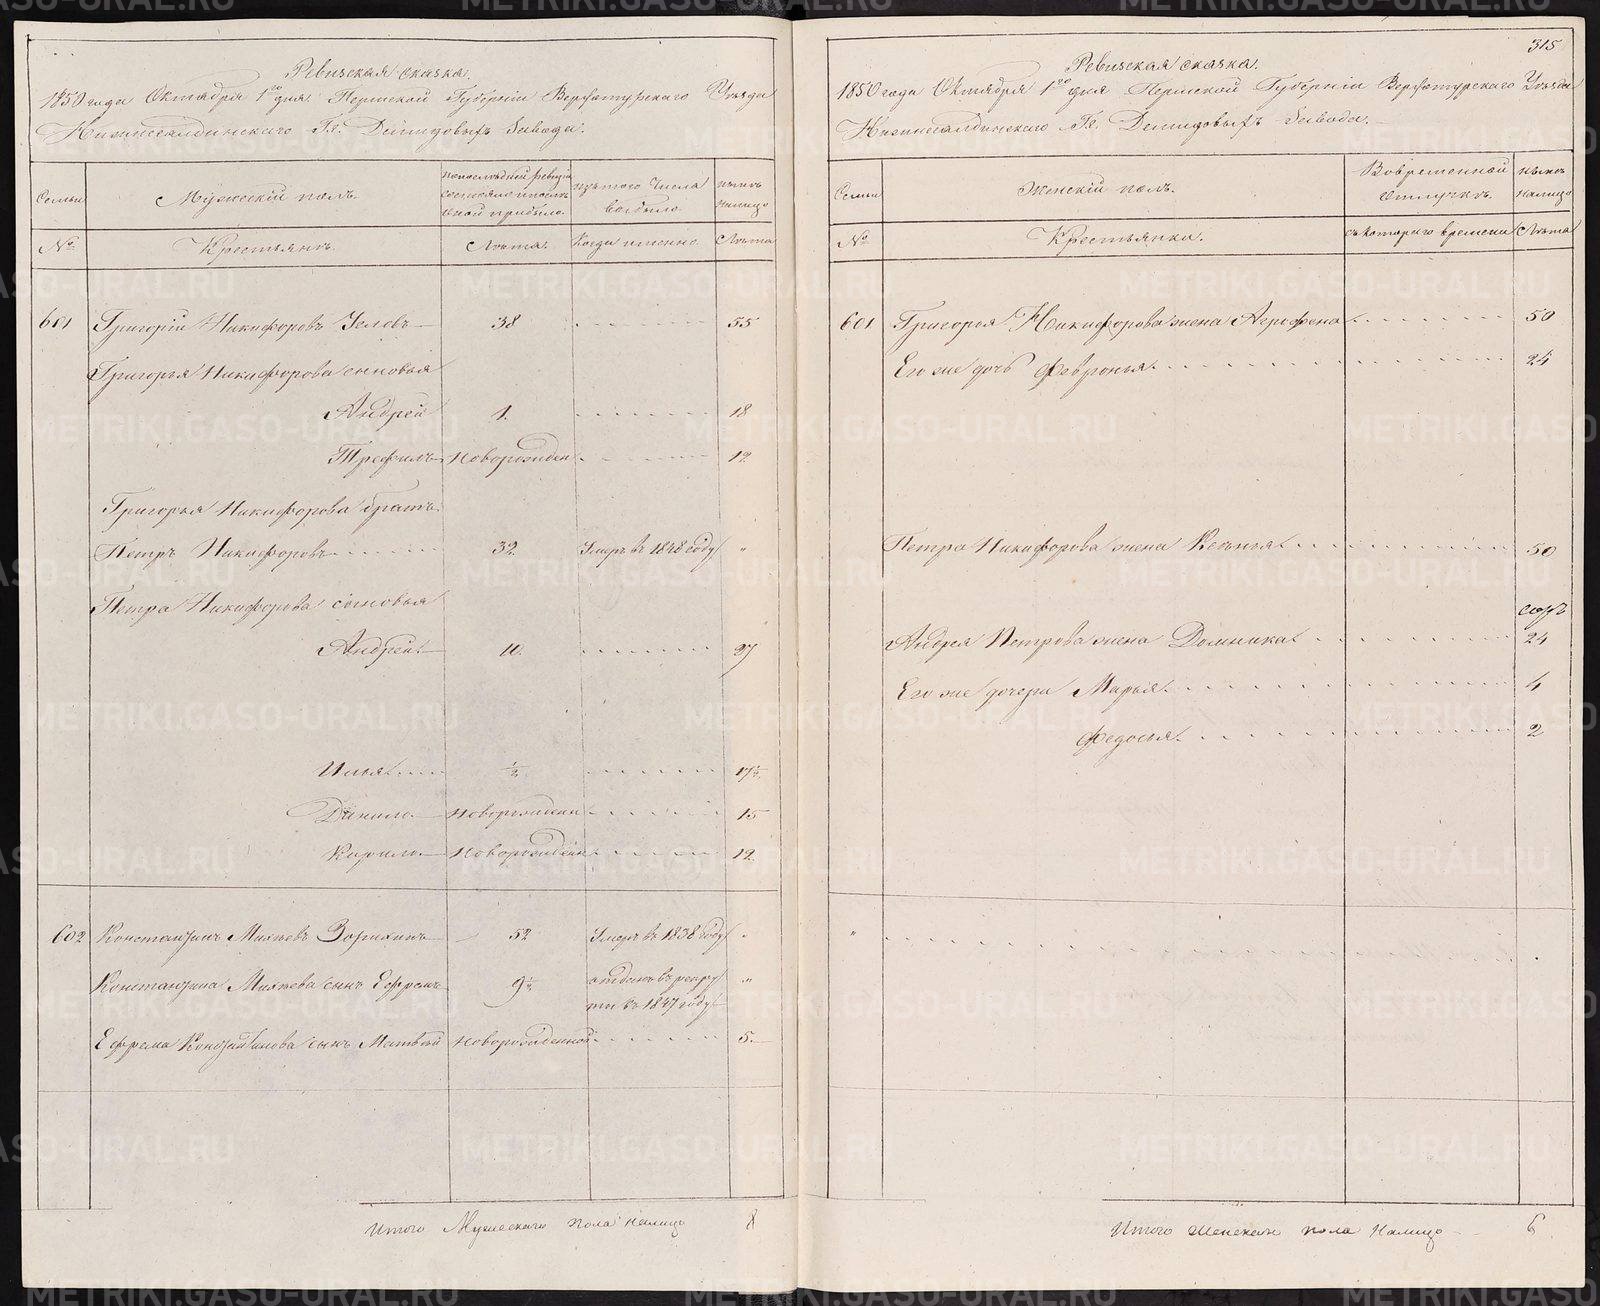 Ревизская сказка.
1850 года Октября 1го дня Пермской Губернiи Верхотурскаго Уѣзда
Нижнесалдинскаго Гг. Демидовыхъ Завода.
Семьи
Мужескiй полъ.
По последней ревизiи состояло и после оной прибыло.
Изъ того числа выбыло.
Нынѣ налицо
№
Крестьянъ.
Лѣта.
Когда именно.
Лѣта
601 Григорiй Никифоровъ Уеловъ 38 55
Григорья Никифорова сыновья
Андрей 1. 18
Трефилъ Новорожден 12
Григорья Никифорова братъ
Петръ Никифоровъ 32 Умеръ въ 1848 году "
Петра Никифорова сыновья
Андрей 10. 27
Илья 1/2 17 1/2
Данило Новорожден 15
Кирило Новорожден 12
602 Константинъ Михѣевъ Зорихинъ 52 Умеръ въ 1838 году "
Константина Михѣева сынъ Ефремъ 9 1/2 отданъ въ рекру
ты въ 1847 году "
Ефрема Константинова сынъ Матвѣй Новорожденной 5.
Итого Мужескаго пола налицо 8
315
Ревизская сказка.
1850 года Октября 1го дня Пермской Губернiи Верхотурскаго Уѣзда
Нижнесалдинскаго Гг. Демидовыхъ Завода.
Семьи
Женскiй полъ.
Во временной отлучкѣ.
Нынѣ налицо
№
Крестьянка.
Съ котораго времени
Лѣта
601 Григорья Никифорова жена Агрофена 50
Его же дочь Февронья 24
Петра Никифорова жена Ксенья 50
Андрея Петрова жена Домника 24
Его же дочери Марья 4
Федосья 2
"
Итого женскаго пола налицо 6
METRIKI.GASO-URAL.RU